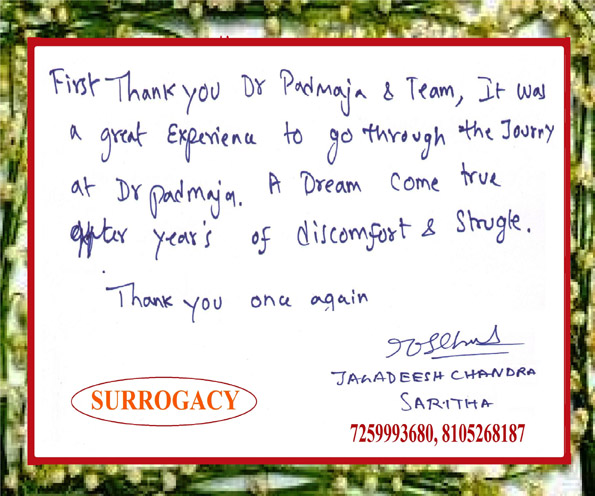 First Thank you Dr Padmaja & Team, It was
a great Experience to go through the Journy
at Dr padmaja. A Dream come true
after year's of discomfort & Strugle.
Thank you once again
JAGADEESH CHANDRA
SARITHA
SURROGACY
7259993680, 8105268187